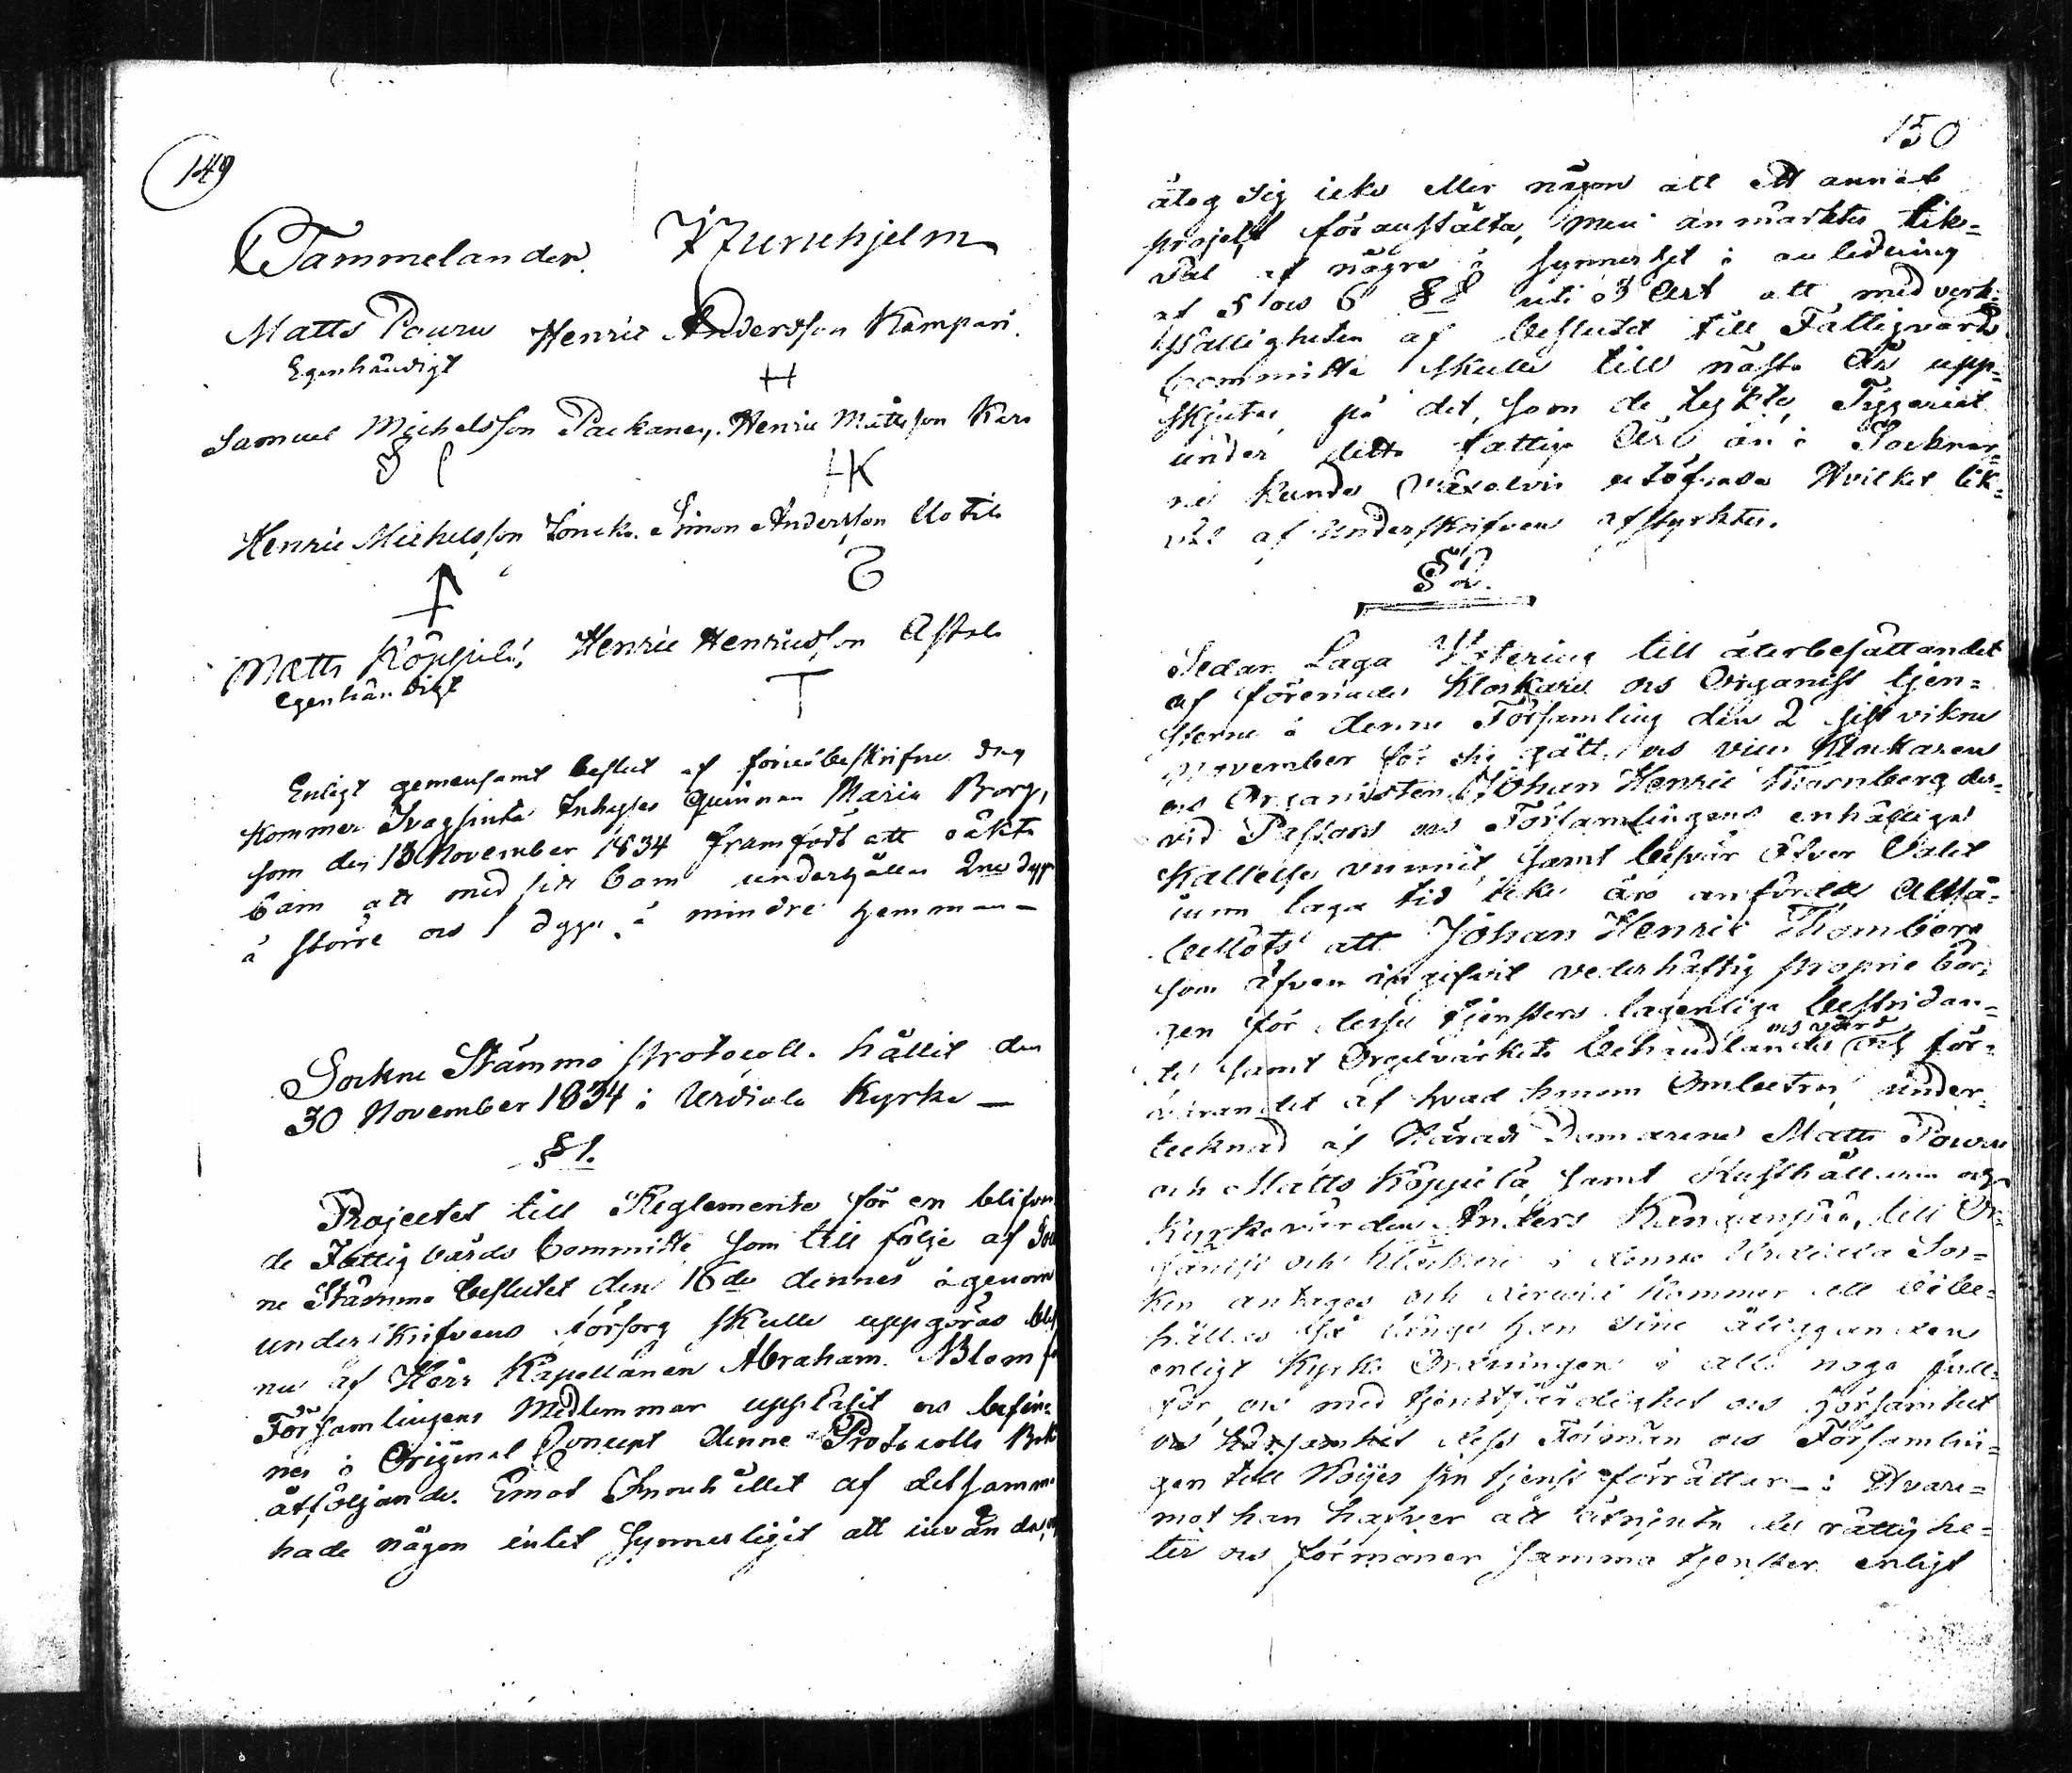 149
Tammelander. Furuhjelm
Matts Pouru Henric Andersson Kampari.
Egenhändigt
H
Samuel Michelsson Packanen, Henric Mattsson Kers
HK
Henric Michelsson Simon Andersson Uotila
Matts Köppilä, Henric Henricsson Astala
egenhändigt
T
Enligt gemensamt beslut af förreskrifne dag
kommer Svagsinta Inhyses Quinnan Maria Borg,
som den 13 November 1834 framfödt ett oäkta
barn att med sitt barn underhållas 2ne dygn
å större och 1 dygn å mindre hemman —
Sockne Stämmo Protocoll. hållit den
30 November 1834 i Urdiala Kyrka —
§ 1.
Projectet till Reglemente för en blifvan
de Fattig Vårds Committé som till följe af Sock
ne Stämmo beslutet den 16de dennes igenom
underskrifvens försorg skulle uppgöras blef
nu af Herr Kapellanen Abraham Blom för
Församlingens Medlemmar uppläsit och befin=
nes i Original Concept denne Protocolls Bok
åtföljande. Emot Innehållet af detsamma
hade någon intet synnerligit att invända,
150
åtog sig icke eller någon att ett annat
project föranstalta, men anmärktes lik=
väl af några i synnerhet i anledning
af 5 och 6 §§ uti 3 Art att med verk=
ställigheten af beslutet till Fattigvårds
Committé skulle till nästa År upp=
skjutas på det, som de tyckte, Tiggeriet
under detta fattiga År än i Socknar=
ne kunde utöfvas Hvilket lik=
väl af Underskrifven afstyrktes.
§ 2.
Sedan Laga Votering till återbesättandet
af förenade Klockare och Organist tjen=
sterne i denne Församling den 2 sistvikne
November för sig gått, och vice Klockaren
och Organisten Johan Henric Thornberg der=
vid Pastors och Församlingens enhälliga
kallelse vunnit, samt besvär öfver Valet
inom laga tid icke äro anförda Altså
beslöts att Johan Henric Thornberg
som äfven ingifvit vederhäftig proprie bor=
gen för desse tjensters lagenliga bestridan=
de samt Orgelvärkets behandlande och vård och för=
varandet af hvad honom Ombetros under=
tecknad af Härads Domarene Matts Pouru
och Matts Köppilä samt Rusthållaren och
Kyrkovärden Anders Kangenpää, till Or=
ganist och Klockare i denne Urdiala Soc=
ken antages och dervid kommer att bibe=
hållas så länge han sine åligganden
enligt Kyrko Ordningen i allo noga full=
gör, och med tjenstfärdighet och hörsamhet
och hörsamhet dess Förmän och Församlin=
gen till Nöijes sin tjenst förrättar —: Hvare=
mot han hafver att åtnjuta de rättighe=
ter och förmoner samma tjenster enligt